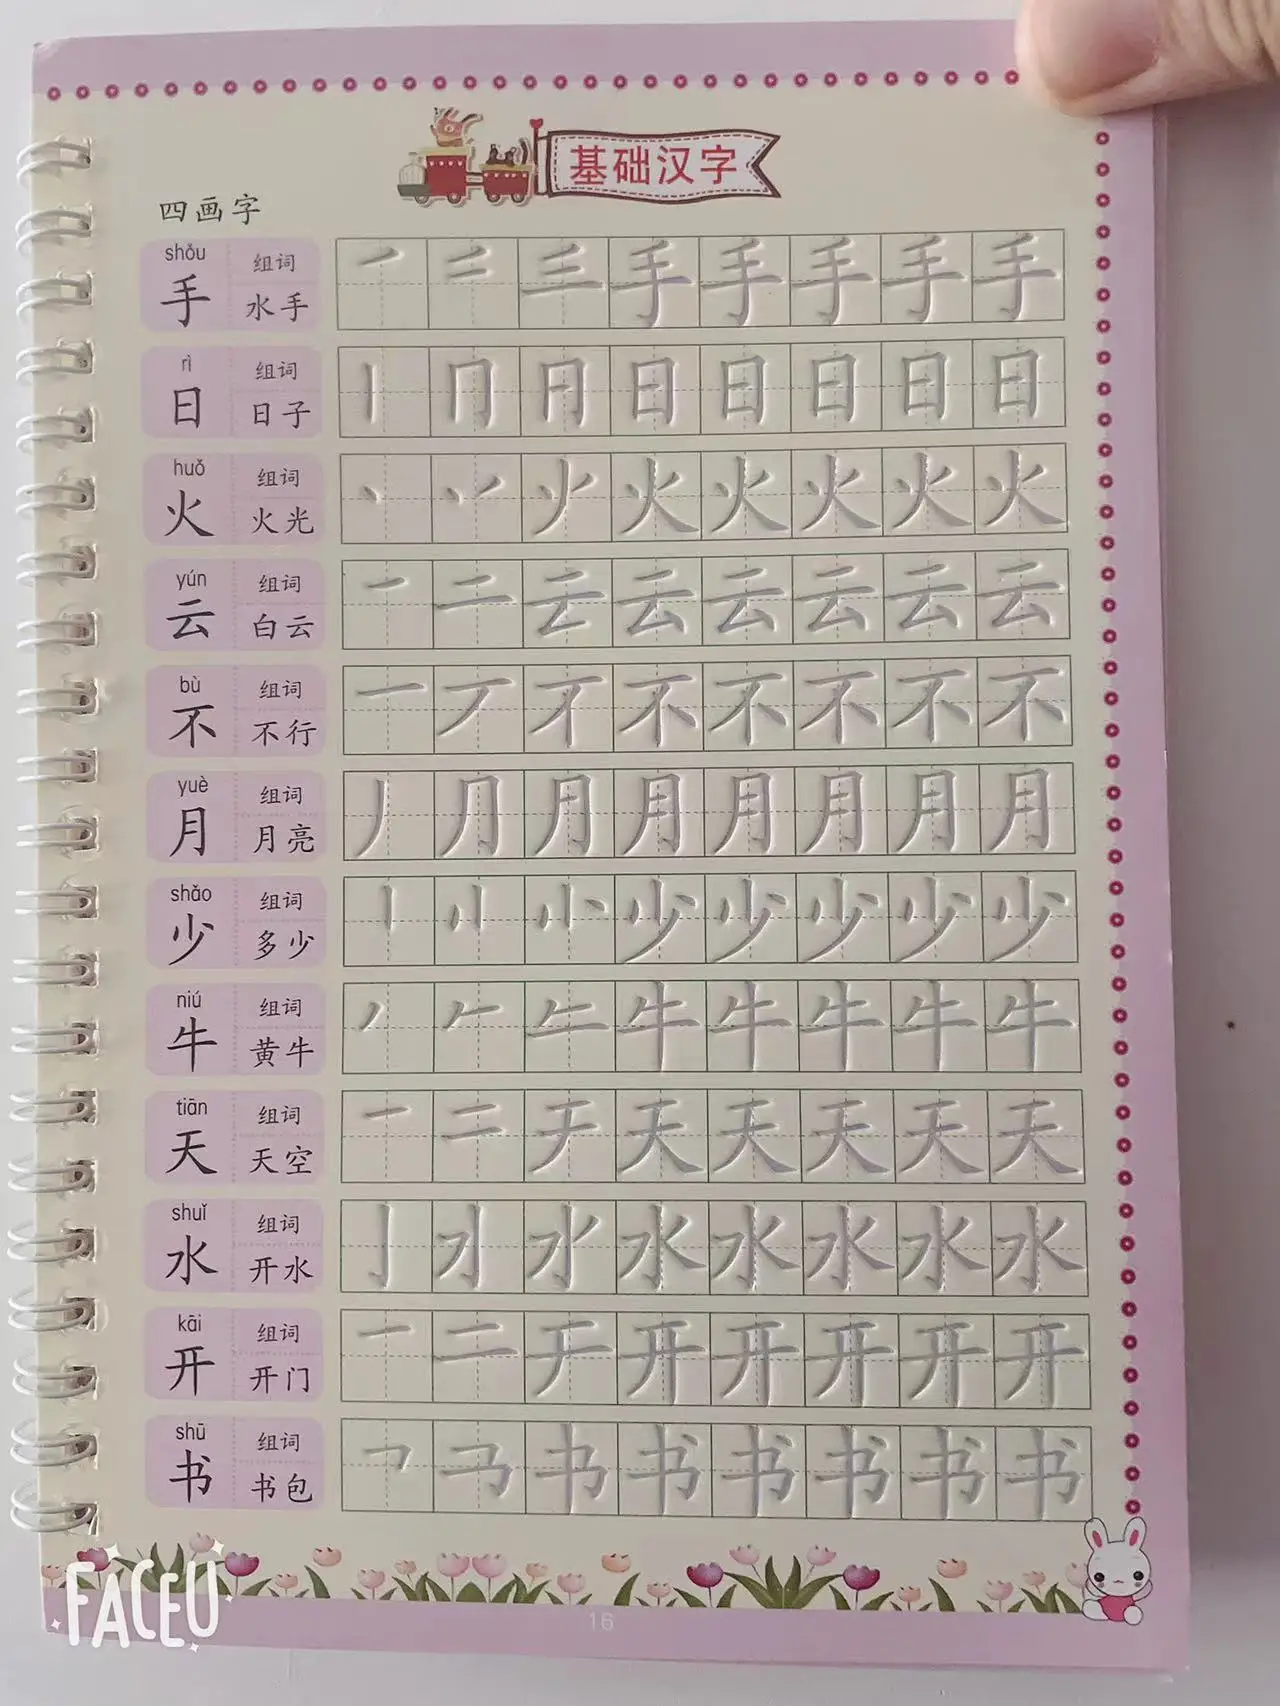 基础汉字
四画字
shǒu 组词
手 水手 手 手 手 手 手
rì 组词
日 日子 日 日 日 日 日
huǒ 组词
火 火光 火 火 火 火 火
yún 组词
云 白云 云 云 云 云 云 云
bù 组词
不 不行 不 不 不 不 不
yuè 组词
月 月亮 月 月 月 月 月
shǎo 组词
少 多少 小 少 少 少 少 少
niú 组词
牛 黄牛 牛 牛 牛 牛 牛
tiān 组词
天 天空 天 天 天 天 天
shuǐ 组词
水 开水 水 水 水 水 水
kāi 组词
开 开门 开 开 开 开 开
shū 组词
书 书包 书 书 书 书 书 书
16
FACEU